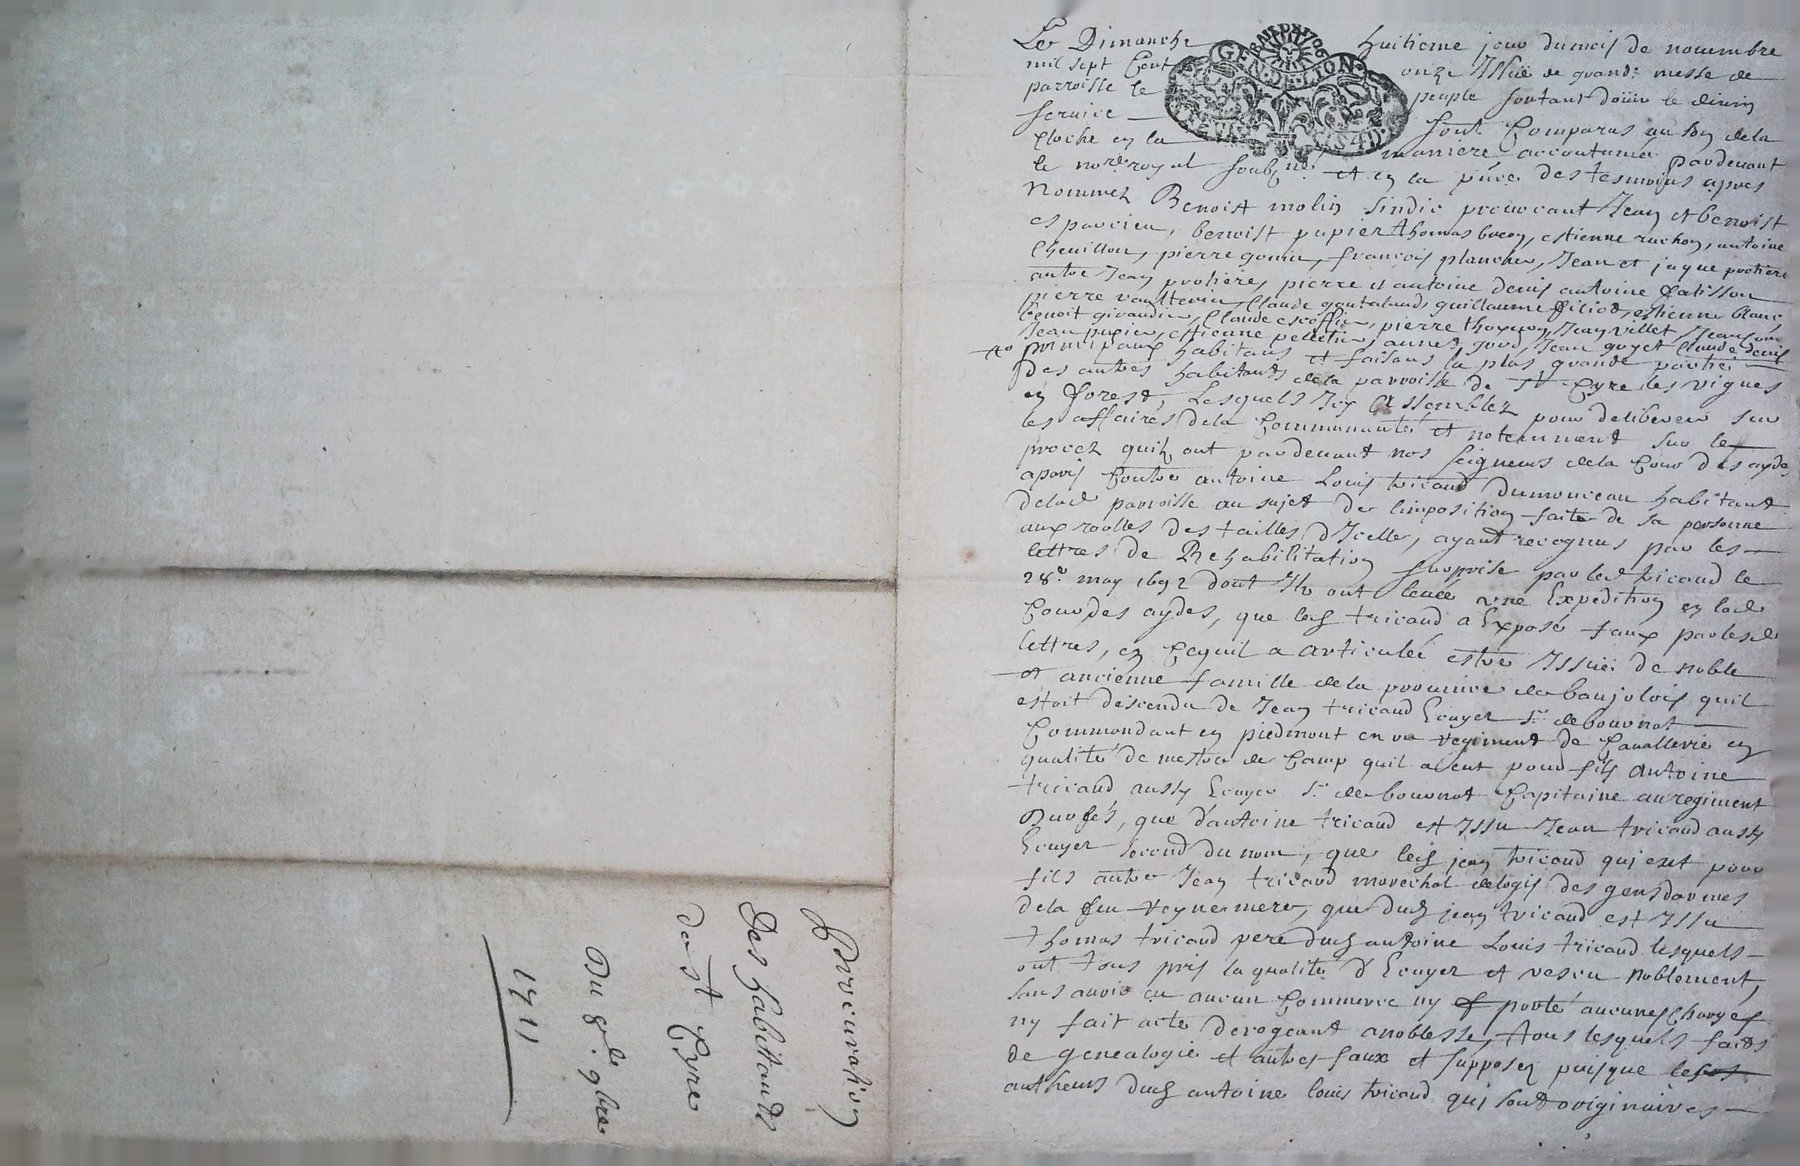 Le Dimanche huitieme jour du mois de nouembre
mil sept Cent onze Issüe de grande messe de
parroisse le peuple sortant douir le diuin
seruice sont Comparus au son de la
Cloche en la maniere accoutumée Pardeuant
le no.re royal soubz.né et en la pnce des tesmoins apres
Nommez Benoist molin sindic Jean et benoist
esparcieu, benoist papier thomas estienne ruchon, antoine
Cheuillon, pierre françois planchet, Jean et jaque protiere
autre Jean protiere, pierre et antoine denis antoine
pierre Claude guillaume filiod, estienne blanc
benoit giraudier, Claude escoffier, pierre Jean villet
Jean papier, estienne pelletier, annet Jean goyet Claude denis
principaux habitans et faisans la plus grande partie
des autres habitants de la parroisse de St Cyre les vignes
en forest, Lesquels Icy assemblez pour deliberer sur
les affaires de la Communauté et notemment sur le
procez quils ont pardeuant nos seigneurs de la Cour des aydes
a paris Contre antoine Louis tricaud dumonceau habitant
delad parroisse au sujet de limposition faite de sa personne
aux roolles des tailles dIcelle, ayant recognus par les
lettres de Rehabilitation surprise par led tricaud le
28e may 1692 dont Ils ont leuée une Expedition en lad
Cour des aydes, que led tricaud a Exposé faux par lesd
lettres, en Cequil a articulée estre Issüe de noble
et ancienne famille de la prouince de baujolois quil
estoit descendu de Jean tricaud Ecuyer Sr de bouonot
Commandant en piedmont en un regiment de Cauallerie en
qualité de mestre de Camp quil a eut pour fils antoine
tricaud aussy Ecuyer Sr de bouonot Capitaine au regiment
Durfés, que d'antoine tricaud est Issu Jean tricaud aussy
Ecuyer second du nom, que led jean tricaud qui eut pour
fils autre Jean tricaud marechal de logis des gensdarmes
de la feu reyne mere, que dud jean tricaud est Issu
thomas tricaud pere dud antoine Louis tricaud lesquels
ont tous pris la qualité d'Ecuyer et vescu noblement,
sans auoir eu aucun Commerce ny porté aucunes Charges
ny fait acte derogeant a noblesse, tous lesquels faits
de genealogie et autres faux et supposez puisque
autheurs dud antoine louis tricaud qui sont originaires
Procuration
Des habittants
de St Cyre
Du 8e 9bre
1711